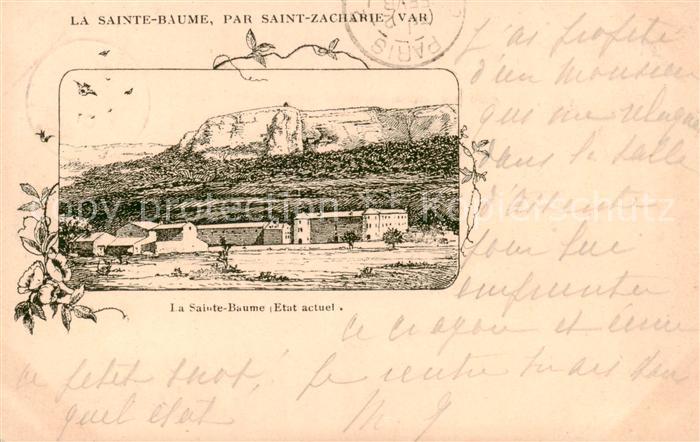 LA SAINTE-BAUME, PAR SAINT-ZACHARIE (VAR)
PARIS
La Sainte-Baume (Etat actuel).
J'ai profité
d'un Monsieur
qui me
dans la salle
d'attente
pour lui
emprunter
ce crayon et
ce petit mot, je rentre mais dans
quel état
M. J
copy protection
Kopierschutz